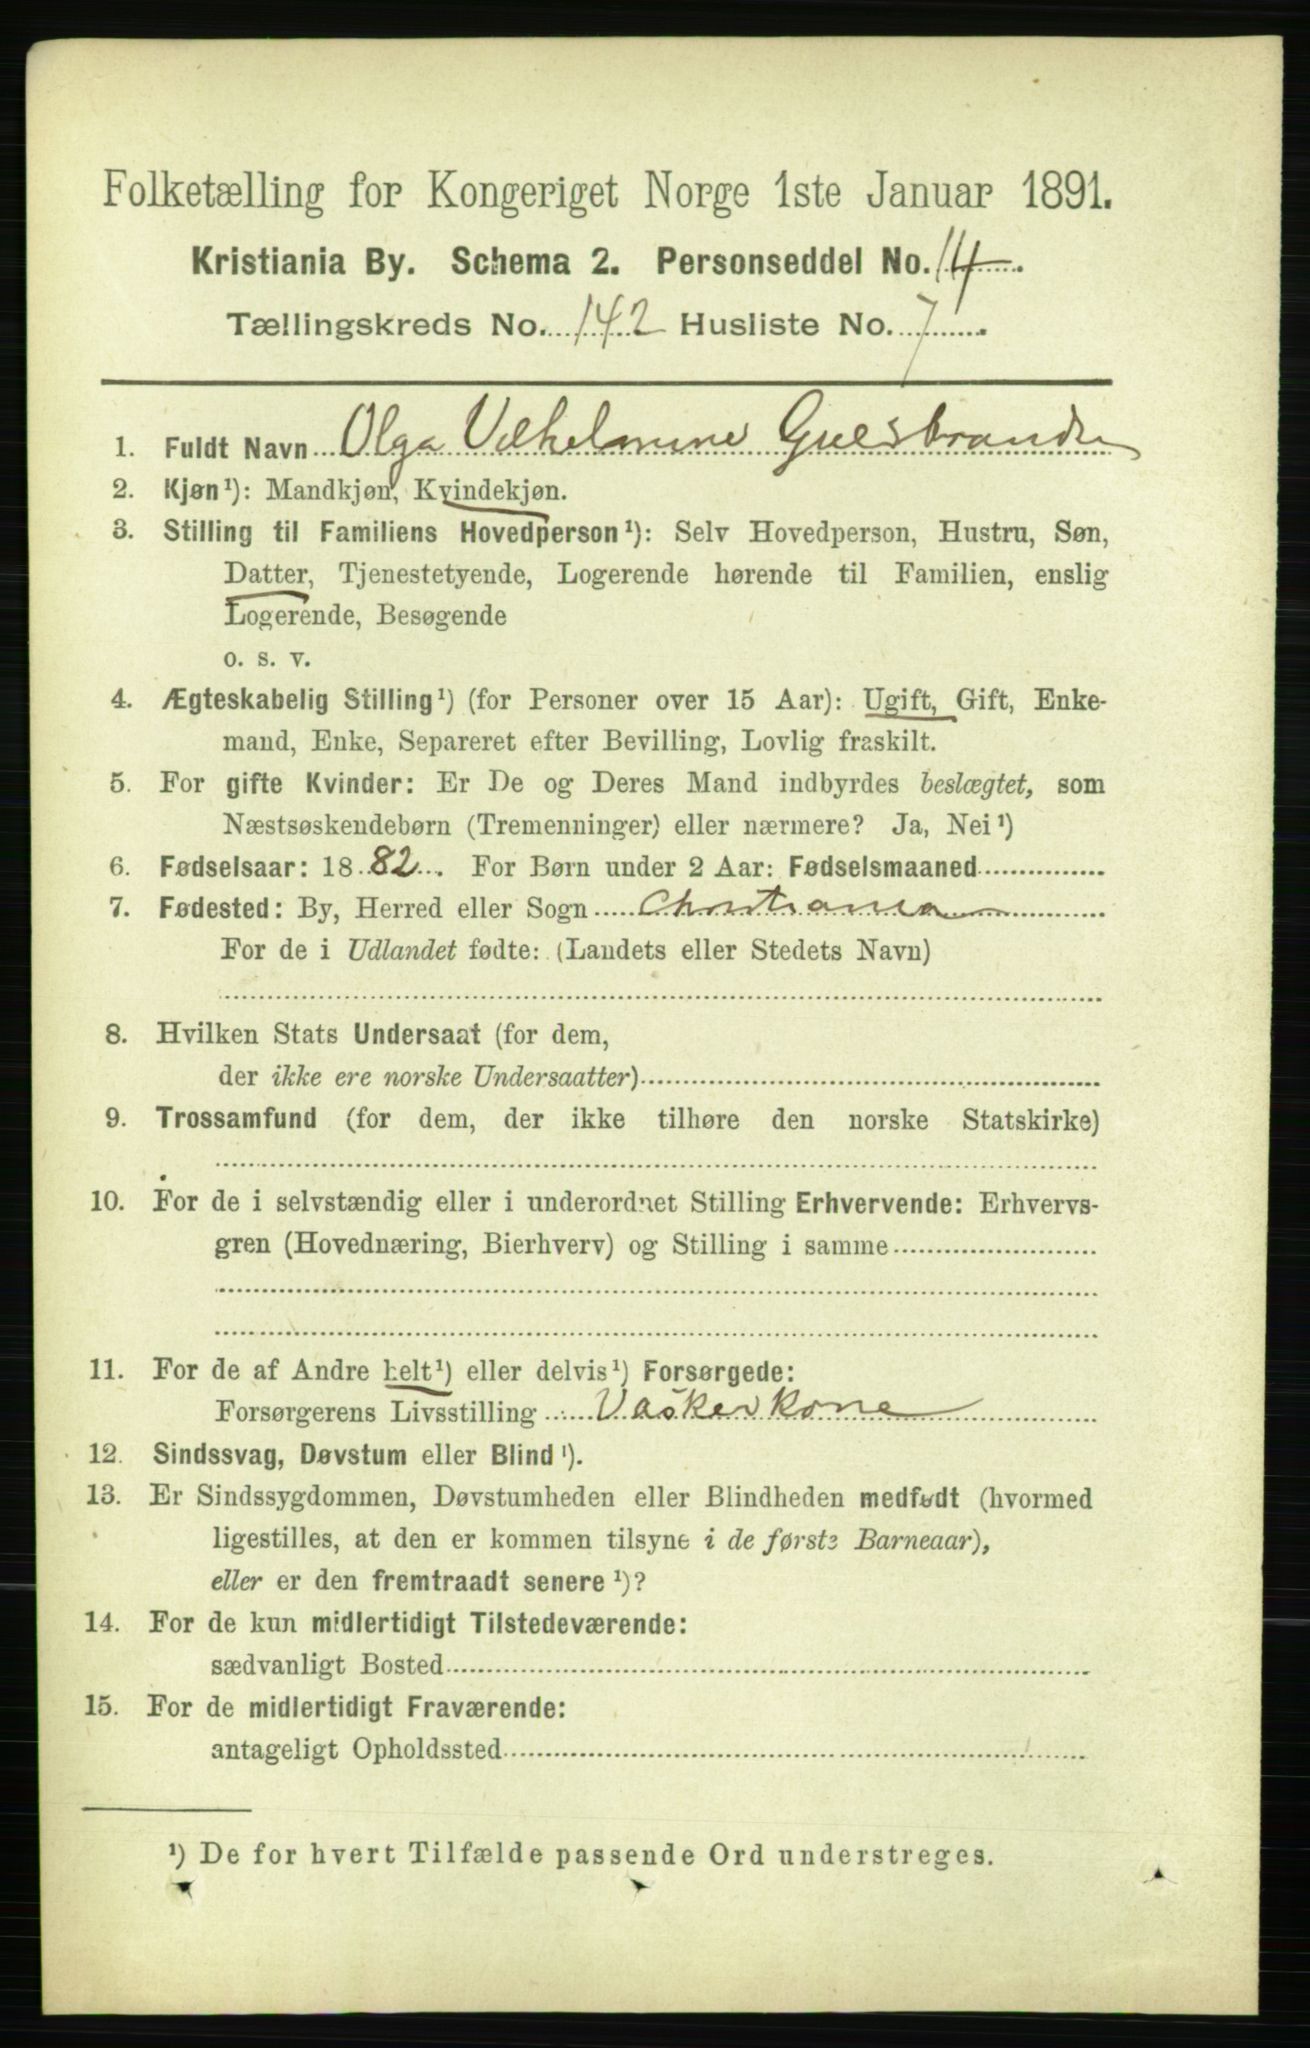 Folketælling for Kongeriget Norge 1ste Januar 1891.
Kristiania By. Schema 2. Personseddel No. 14.
Tællingskreds No. 142 Husliste No. 7.
1. Fuldt Navn Olga Vilhelmine
2. Kjøn¹): Mandkjøn, Kvindekjøn.
3. Stilling til Familiens Hovedperson¹): Selv Hovedperson, Hustru, Søn,
Datter, Tjenestetyende, Logerende hørende til Familien, enslig
Logerende, Besøgende
o. s. v.
4. Ægteskabelig Stilling¹) (for Personer over 15 Aar): Ugift, Gift, Enke-
mand, Enke, Separeret efter Bevilling, Lovlig fraskilt.
5. For gifte Kvinder: Er De og Deres Mand indbyrdes beslægtet, som
Næstsøskendebørn (Tremenninger) eller nærmere? Ja, Nei¹)
6. Fødselsaar: 1882. For Børn under 2 Aar: Fødselsmaaned
7. Fødested: By, Herred eller Sogn Christiania
For de i Udlandet fødte: (Landets eller Stedets Navn)
8. Hvilken Stats Undersaat (for dem,
der ikke ere norske Undersaatter)
9. Trossamfund (for dem, der ikke tilhøre den norske Statskirke)
10. For de i selvstændig eller i underordnet Stilling Erhvervende: Erhvervs-
gren (Hovednæring, Bierhverv) og Stilling i samme
11. For de af Andre helt¹) eller delvis¹) Forsørgede:
Forsørgerens Livsstilling Vaskerkone
12. Sindssvag, Døvstum eller Blind¹).
13. Er Sindssygdommen, Døvstumheden eller Blindheden medfødt (hvormed
ligestilles, at den er kommen tilsyne i de første Barneaar),
eller er den fremtraadt senere¹)?
14. For de kun midlertidigt Tilstedeværende:
sædvanligt Bosted
15. For de midlertidigt Fraværende:
antageligt Opholdssted
¹) De for hvert Tilfælde passende Ord understreges.